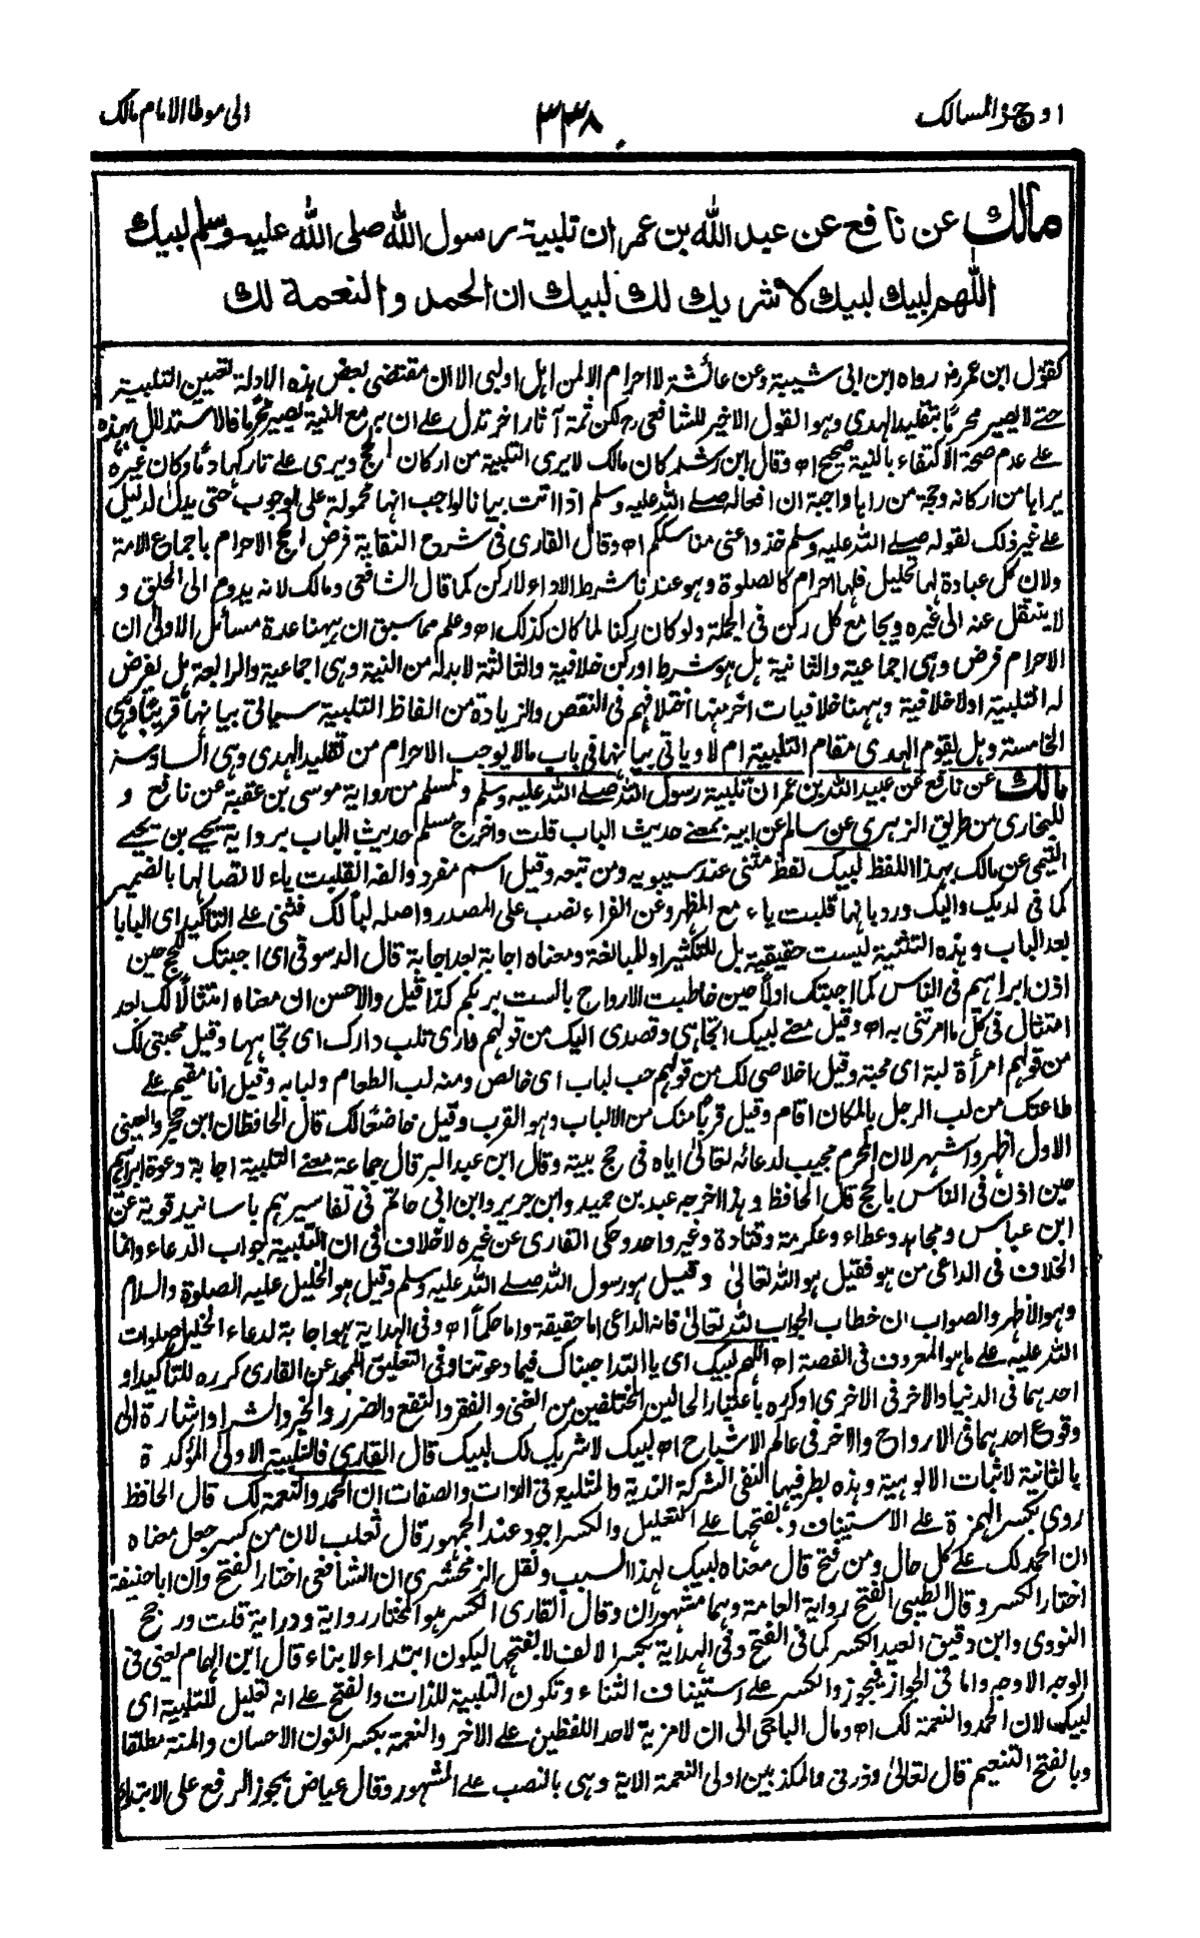 اوجز المسالك ٣٣٨ الى موطا الامام مالك
مالك عن نافع عن عبد الله بن عمر ان تلبية رسول الله صلى الله عليه وسلم لبيك
اللهم لبيك لبيك لا شريك لك لبيك ان الحمد والنعمة لك
كقول ابن عمر رض رواه ابن ابى شيبة وعن عائشة لا احرام الا لمن اهل او لبى الا ان مقتضى بعض هذه الادلة تعيين التلبية
حتى لا يصير محرمًا بتقليد الهدى وهو القول الاخير للشافعى لكن ثمة آثار اخر تدل على ان به مع النية يصير محرمًا فالاستدلال بهذه
على عدم صحة الاكتفاء بالنية صحيح اه وقال ابن رشد كان مالك لا يرى التلبية من اركان الحج ويرى على تاركها دمًا وكان غيره
يراها من اركانه وحجة من راها واجبة ان افعاله صلى الله عليه وسلم اذا اتت بيانا لواجب انها محمولة على الوجوب حتى يدل الدليل
على غير ذلك لقوله صلى الله عليه وسلم خذوا عنى مناسككم اه وقال القارى فى شرح النقاية فرض الحج الاحرام باجماع الامة
ولان كل عبادة لها تحليل فلها احرام كالصلوة وهو عندنا شرط الاداء لا ركن كما قال الشافعى ومالك لانه يدوم الى الحلق و
لا ينتقل عنه الى غيره ويجامع كل ركن فى الجملة ولو كان ركنا لما كان كذلك اه وعلم مما سبق ان ههنا عدة مسائل الاولى ان
الاحرام فرض وهى اجماعية والثانية هل هو شرط او ركن خلافية والثالثة لا بد له من النية وهى اجماعية والرابعة هل يفرض
له التلبية اولا خلافية وههنا خلافيات اخر منها اختلافهم فى النقص والزيادة من الفاظ التلبية سياتى بيانها قريبًا وهى
الخامسة وهل يقوم الهدى مقام التلبية ام لا وياتى بيانها فى باب مالا يوجب الاحرام من تقليد الهدى وهى السادسة
مالك عن نافع عن عبد الله بن عمر ان تلبية رسول الله صلى الله عليه وسلم ولمسلم من رواية موسى بن عقبة عن نافع و
للبخارى من طريق الزهرى عن سالم عن ابيه بمعنى حديث الباب قلت واخرج مسلم حديث الباب برواية يحيى بن يحيى
التيمى عن مالك بهذا اللفظ لبيك لفظ مثنى عند سيبويه ومن تبعه وقيل اسم مفرد والفه القلبت ياء لاتصالها بالضمير
كما فى لديك واليك ورد بانها قلبت ياء مع المظهر وعن الفراء نصب على المصدر واصله لبا لك فثنى على التاكيد اى البابا
بعد الباب وهذه التثنية ليست حقيقية بل للتكثير او للمبالغة ومعناه اجابة بعد اجابة قال الدسوقى اى اجبتك للحج حين
اذن ابراهيم فى الناس كما اجبتك اولًا حين خاطبت الارواح بالست بربكم كذا قيل والاحسن ان معناه امتثالًا لك بعد
امتثال فى كل ما امرتنى به اه وقيل معنى لبيك اتجاهى وقصدى اليك من قولهم دارى تلب دارك اى تجاهها وقيل محبتى لك
من قولهم امرأة لبة اى محبة وقيل اخلاصى لك من قولهم حب لباب اى خالص ومنه لب الطعام ولبابه وقيل انا مقيم على
طاعتك من لب الرجل بالمكان اقام وقيل قربًا منك من الالباب وهو القرب وقيل خاضعًا لك قال الحافظان ابن حجر والعينى
الاول اظهر واشهر لان المحرم مجيب لدعائه تعالى اياه فى حج بيته وقال ابن عبد البر قال جماعة معنى التلبية اجابة دعوة ابراهيم
حين اذن فى الناس بالحج قال الحافظ وهذا اخرجه عبد بن حميد وابن جرير وابن ابى حاتم فى تفاسيرهم باسانيد قوية عن
ابن عباس ومجاهد وعطاء وعكرمة وقتادة وغير واحد وحكى القارى عن غيره لا خلاف فى ان التلبية جواب الدعاء وانما
الخلاف فى الداعى من هو فقيل هو الله تعالى وقيل هو رسول الله صلى الله عليه وسلم وقيل هو الخليل عليه الصلوة والسلام
وهو الاظهر والصواب ان خطاب الجواب لله تعالى فانه الداعى اما حقيقة واما حكمًا اه وفى الهداية هو اجابة لدعاء الخليل صلوات
الله عليه على ما هو المعروف فى القصة اه اللهم لبيك اى يا الله اجبناك فيما دعوتنا وفى التعليق الممجد عن القارى كرره للتاكيد او
احدهما فى الدنيا والاخر فى الاخرى او كرره باعتبار الحالين المختلفين من الغنى والفقر والنفع والضرر والخير والشر او اشارة الى
وقوع احدهما فى الارواح والاخر فى عالم الاشباح اه لبيك لا شريك لك لبيك قال القارى فالتلبية الاولى المؤكدة
بالثانية لاثبات الالوهية وهذه بطرفيها لنفى الشركة الندية والمثلية فى الذات والصفات ان الحمد والنعمة لك قال الحافظ
روى بكسر الهمزة على الاستيناف وبفتحها على التعليل والكسر اجود عند الجمهور قال ثعلب لان من كسر جعل معناه
ان الحمد لك على كل حال ومن فتح قال معناه لبيك لهذا السبب ونقل الزمخشرى ان الشافعى اختار الفتح وان ابا حنيفة
اختار الكسر وقال الطيبى الفتح رواية العامة وهما مشهوران وقال القارى الكسر هو المختار رواية ودراية قلت ورجح
النووى وابن دقيق العيد الكسر كما فى الفتح وفى الهداية بكسر الالف لا بفتحها ليكون ابتداء لا بناء قال ابن الهمام يعنى فى
الوجه الاوجه واما فى الجواز فيجوز والكسر على استيناف الثناء وتكون التلبية للذات والفتح على انه تعليل للتلبية اى
لبيك لان الحمد والنعمة لك اه ومال الباجى الى ان لا مزية لاحد اللفظين على الاخر والنعمة بكسر النون الاحسان والمنة مطلقا
وبالفتح التنعيم قال تعالى وذرنى والمكذبين اولى النعمة الاية وهى بالنصب على المشهور وقال عياض يجوز الرفع على الابتداء